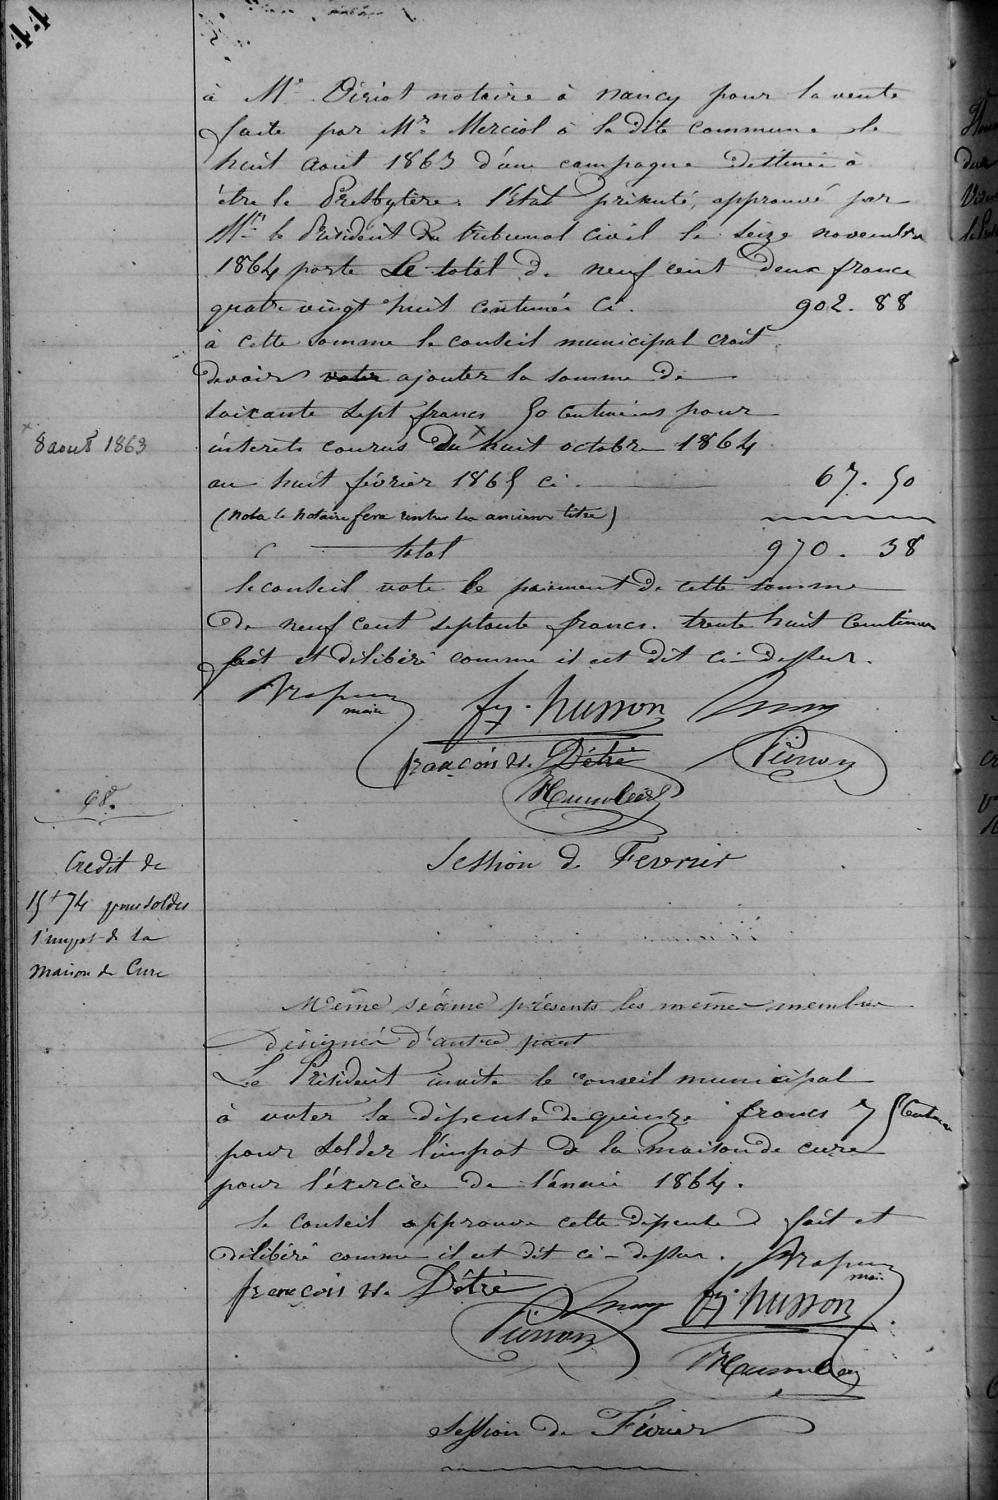 44
à Mr Diriot notaire à nancy pour la vente
faite par Mr Merciol à la dite commune le
huit aout 1863 d'une campagne destinée à
être le Presbytère. l'état présenté, approuvé par
Mr le Président du tribunal civil le seize novembre
1864 porte le total de neuf cent deux francs
quatre vingt huit centimes Ci. 902. 88
à cette somme le conseil municipal croit
devoir voter ajouter la somme de
soixante sept francs 50 centimes pour
× 8 aout 1863
intérêts courus du × huit octobre 1864
au huit février 1865 ci. 67. 50
(Nota le notaire fera rentrer les anciens titres)
total 970. 38
le conseil vote le paiement de cette somme
de neuf cent septante francs. trente huit centimes
fait et délibéré comme il est dit ci-dessus.
maire
fs. husson
françois N. Détré
Piernon
Humbert
98.
Credit de
15f 74 pour solder
l'impot de la
maison de Cure
Session de Fevrier
Même séance présents les mêmes membres
désignés d'autre part
Le Président invite le conseil municipal
à voter la dépense de quinze francs 75 centimes
pour solder l'impot de la maison de cure
pour l'éxercice de l'année 1864.
le Conseil approuve cette dépense fait et
délibéré comme il est dit ci-dessus.
maire
françois N. Détré
fs. husson
Piernon
Humbert
Session de Février